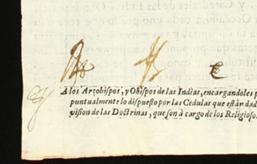 A los Arzobispos, y Obispos de las Indias, encargandoles p
puntualmente lo dispuesto por las Cedulas que estàn dad
vision de las Doctrinas, que son à cargo de los Religioso